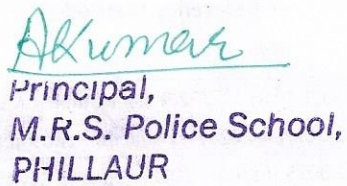 AKumar
Principal,
M.R.S. Police School,
PHILLAUR